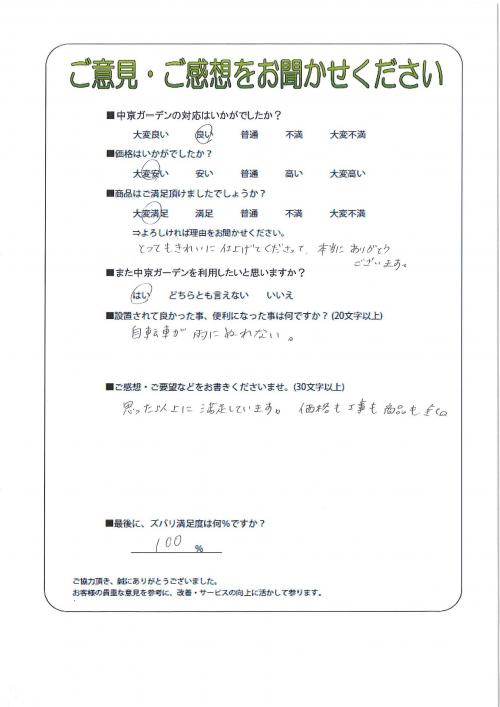 ご意見・ご感想をお聞かせください
■中京ガーデンの対応はいかがでしたか？
大変良い 良い 普通 不満 大変不満
■価格はいかがでしたか？
大変安い 安い 普通 高い 大変高い
■商品はご満足頂けましたでしょうか？
大変満足 満足 普通 不満 大変不満
⇒よろしければ理由をお聞かせください。
とってもきれいに仕上げてくださって、本当にありがとう
ございます。
■また中京ガーデンを利用したいと思いますか？
はい どちらとも言えない いいえ
■設置されて良かった事、便利になった事は何ですか？(20文字以上)
自転車が雨にぬれない。
■ご感想・ご要望などをお書きくださいませ。(30文字以上)
思った以上に満足しています。価格も工事も商品も
■最後に、ズバリ満足度は何％ですか？
100 %
ご協力頂き、誠にありがとうございました。
お客様の貴重な意見を参考に、改善・サービスの向上に活かして参ります。